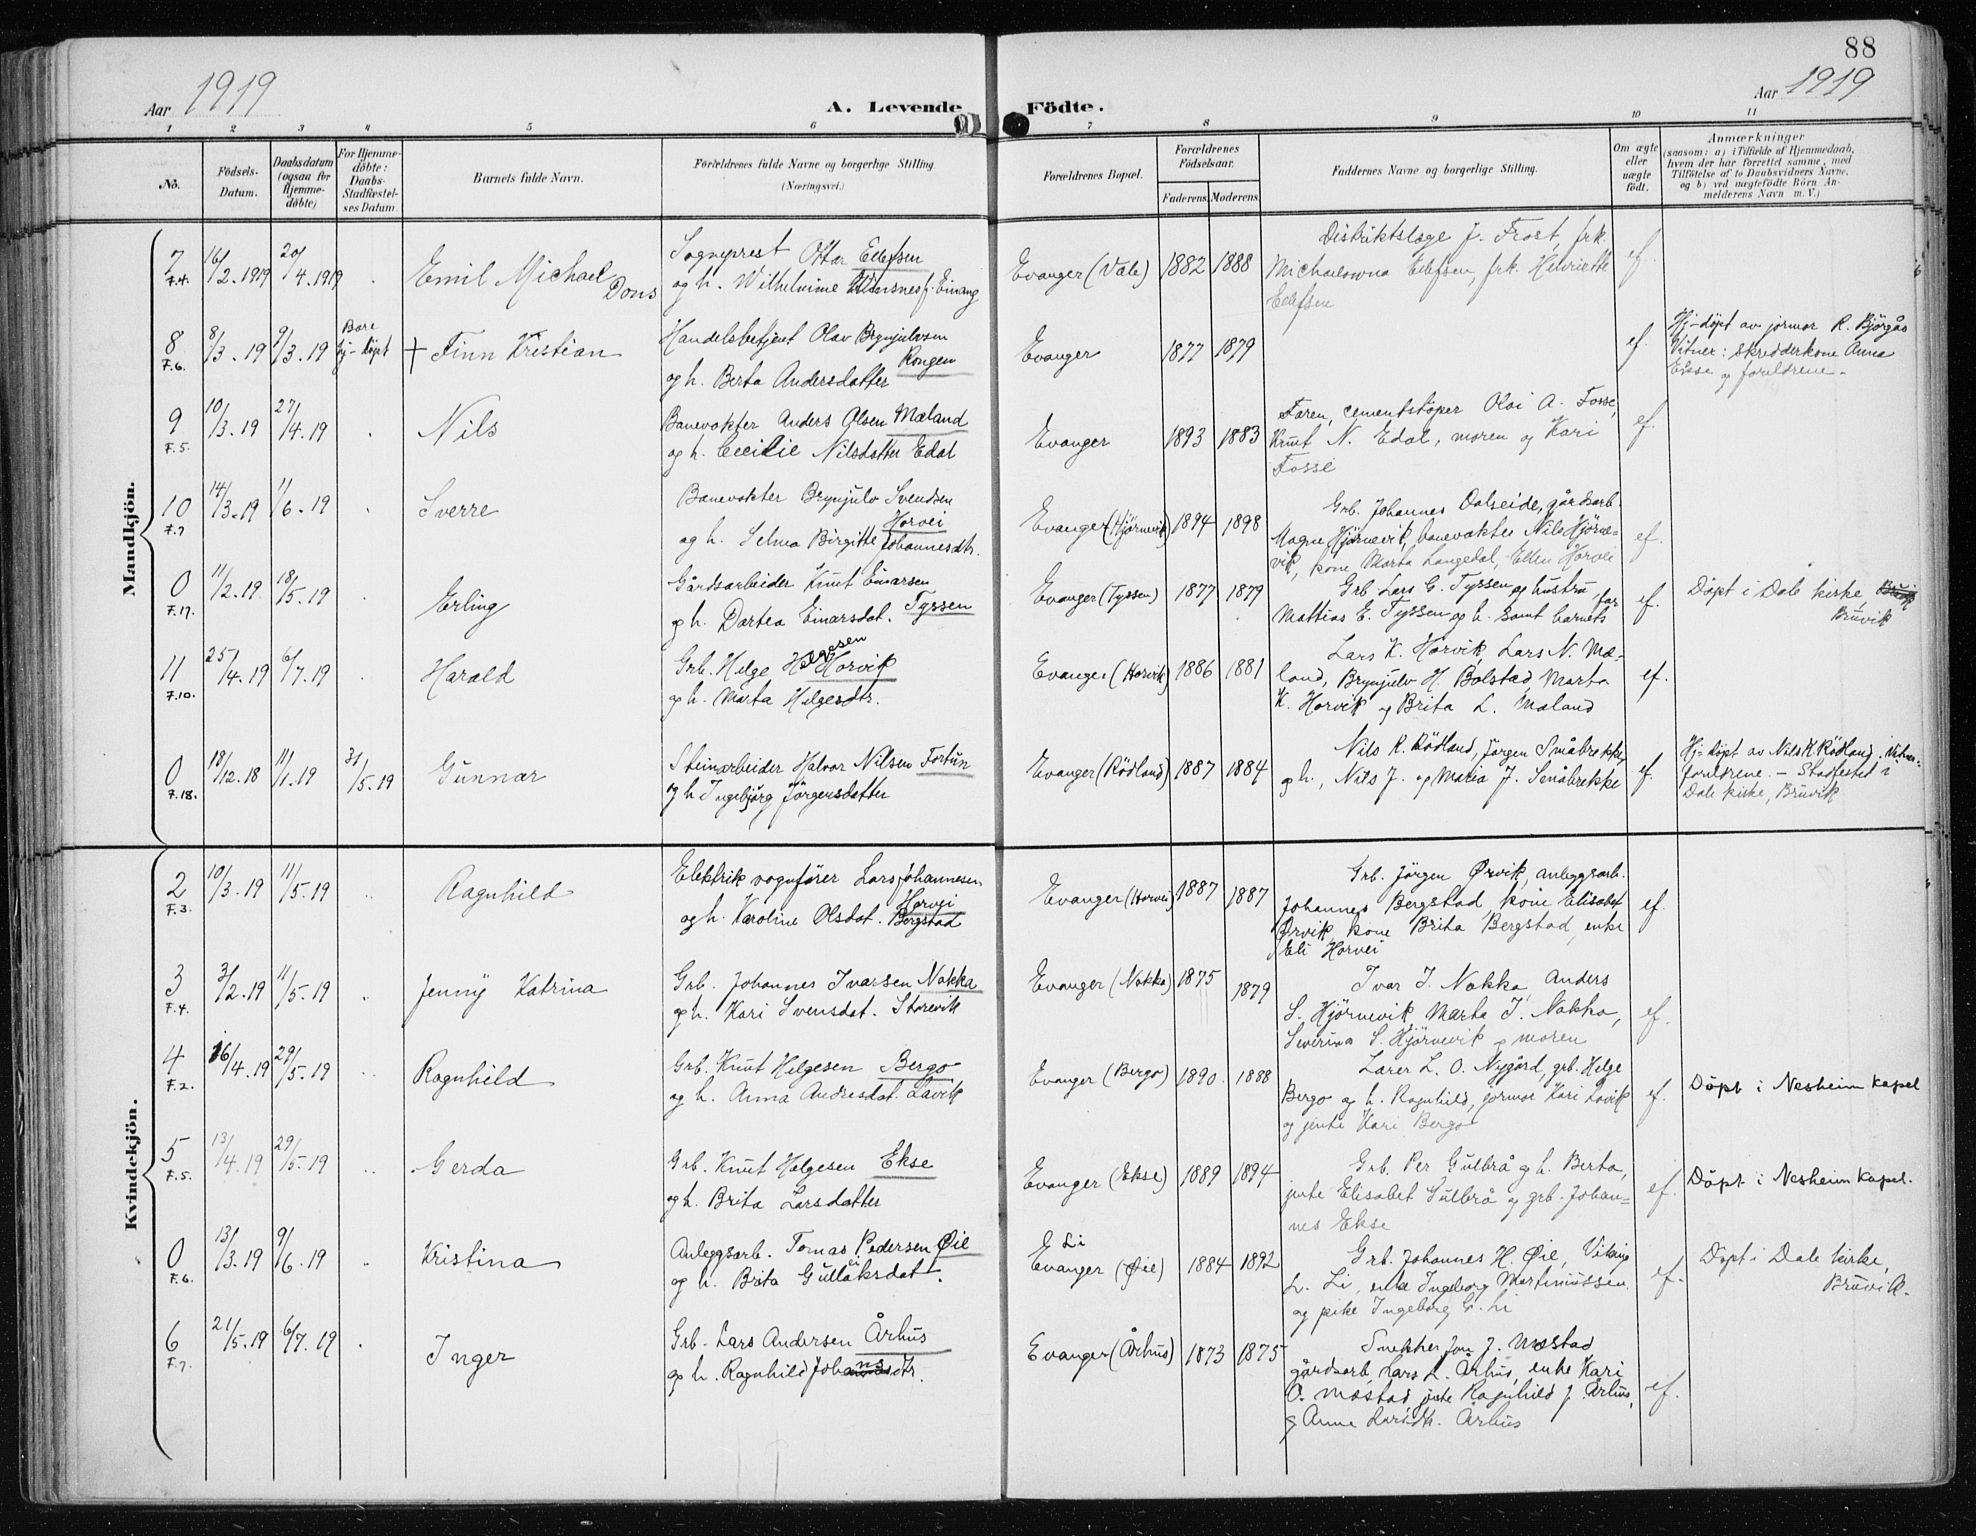 88
Aar 1919
A. Levende Födte.
Aar 1919
1 2 3 4 5 6 7 8 9 10 11
No.
Födsels-
Datum.
Daabsdatum
(ogsaa for
Hjemme-
döbte)
For Hjemme-
döbte:
Daabs-
Stadfæstel-
ses Datum.
Barnets fulde Navn.
Forældrenes fulde Navne og borgerlige Stilling.
(Næringsvei.)
Forældrenes Bopæl.
Forældrenes
Födselsaar.
Faderens. Moderens.
Faddernes Navne og borgerlige Stilling.
Om ægte
eller
uægte
födt.
Anmærkninger
(saasom: a) i Tilfælde af Hjemmedaab,
hvem der har forrettet samme, med
Tilföielse af to Daabsvidners Navne,
og b) ved uægtefödte Börn An-
melderens Navn m. V.)
Mandkjön.
7 F.4. 16/2.1919 20/4.1919 Emil Michael
Dons
Sogneprest Ottar Ellefsen
og h. Wilhelmine f. Einang
Evanger (Vale) 1882 1888
Distriktslæge J. Frost, frk.
Michaelowna Ellefsen, frk. Henriette
Ellefsen
ef.
8 F.6. 8/3.19 9/3.19 Bare
hj-døpt
† Finn Kristian
Handelsbetjent Olav Brynjulvsen
Rongen
og h. Berta Andersdatter
Evanger 1877 1879 ef.
Hj-döpt av jormor R. Björgås
Vitner: skredderkone Anna
Ekse og foreldrene.-
9 F.5. 10/3.19 27/4.19 Nils
Banevokter Anders Olsen Mæland
og h. Cecilie Nilsdatter Edal
Evanger 1893 1883
Faren, cementstöper Olai A. Fosse,
Knut N. Edal, moren og Kari
Fosse
ef.
10 F.7 14/3.19 11/6.19 Sverre
Banevokter Brynjulv Svendsen
Horvei
og h. Selma Birgitte Johannesdtr.
Evanger (Hjørnevik) 1894 1898
Grb. Johannes Dalseide, gårdsarb.
Magne Hjörnevik, banevokter Nils Hjörne-
vik, kone Marta Langedal, Ellen Horvei
ef.
0 F.17. 11/2.19. 18/5.19 Erling
Gårdsarbeider Knut Einarsen
og h. Dortea Einarsdat. Tyssen
Evanger (Tyssen) 1877 1879
Grb. Lars G. Tyssen og hustru, far
Mattias E. Tyssen og h. samt barnets
ef.
Döpt i Dale kirke
Bruvik
11 F.10. 25/4.19 6/7.19 Harald
Grb. Helge Helgesen Horvik
og h. Marta Helgesdtr.
Evanger (Horvik) 1886 1881
Lars K. Horvik, Lars N. Mæ-
land, Brynjulv H. Bolstad, Marta
K. Horvik og Brita L. Mæland
ef.
0 F.18. 18/12.18 11/1.19 31/5.19 Gunnar
Steinarbeider Halvor Nilsen Fortun
og h Ingebjörg Jörgensdatter
Evanger (Rödland) 1887 1884
Nils R. Rödland, Jörgen Småbrekke
og h., Nils J. og Maria J. Småbrekke
ef.
Hj-döpt av Nils K. Rödland. Vitner
foreldrene. - Stadfestet i
Dale kirke, Bruvik
Kvindekjön.
2 F.3. 10/3.19 11/5.19 Ragnhild
Elektrik vognfører Lars Johannesen
Horvei
og h. Karoline Olsdat. Bergstad
Evanger (Horvei) 1887 1887
Grb. Jörgen Ørvik, anleggsarb.
Johannes Bergstad, kone Elisabet
Ørvik, kone Brita Bergstad, enke
Eli Horvei
ef.
3 F.4. 3/2.19 11/5.19 Jenny Katrina
Grb. Johannes Ivarsen Nokka
og h. Kari Svensdat. Storevik
Evanger (Nokka) 1875 1879
Ivar I. Nokka, Anders
S. Hjörnevik, Marta I. Nokka,
Severina S. Hjörnevik og moren
ef.
4 F.2. 16/4.19 29/5.19 Ragnhild
Grb. Knut Helgesen Bergo
og h. Anna Andresdat. Lavik
Evanger (Bergo) 1890. 1888
Lærer L. O. Nygård, grb. Helge
Bergo og h. Ragnhild, jormor Kari Lavik
og jente Kari Bergo
ef.
Döpt i Nesheim Kapel
5 F.5. 13/4.19 29/5.19 Gerda
Grb. Knut Helgesen Ekse
og h. Brita Larsdatter
Evanger (Ekse) 1889 1894
Grb. Per Gulbrå og h. Berta,
jente Elisabet Gulbrå og grb. Johan-
nes Ekse
ef.
Döpt i Nesheim Kapel.
0 F.6. 13/3.19 9/6.19 Kristina
Anleggsarb. Tomas Pedersen Øie
og h. Brita Gullaksdat. Li
Evanger (Øie) 1884 1892
Grb. Johannes H. Øie, Viking
L. Li, enke Ingeborg Martinussen
og pike Ingeborg G. Li
ef.
Döpt i Dale kirke,
Bruvik.
6 F.7. 21/5.19 6/7.19 Inger
Grb. Lars Andersen Århus
og h. Ragnhild Johansdtr.
Evanger (Århus) 1873 1875
Snekker Jon J. Mæstad
gårdsarb. Lars L. Århus, enke Kari
O. Mæstad, jente Ragnhild J. Århus,
og Anna Larsdtr. Århus
ef.